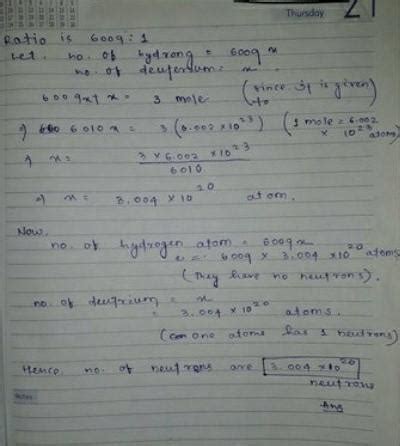 Thursday 21
Ratio is 6009 : 1
Let, no. of hydrong = 6009 x
no. of deuterium = x
6009x + x = 3 mole (since it is given)
⇒ 6010 x = 3 (6.002 × 10²³) (1 mole = 6.002 × 10²³ atoms)
⇒ x = 3 × 6.002 × 10²³ / 6010
⇒ x = 3.004 × 10²⁰ atom.
Now,
no. of hydrogen atom = 6009x
= 6009 × 3.004 × 10²⁰ atoms
(They have no neutrons).
no. of deutrium = x
= 3.004 × 10²⁰ atoms.
(one atoms has 1 neutrons)
Hence, no. of neutrons are 3.004 × 10²⁰
neutrons
Ans
Notes